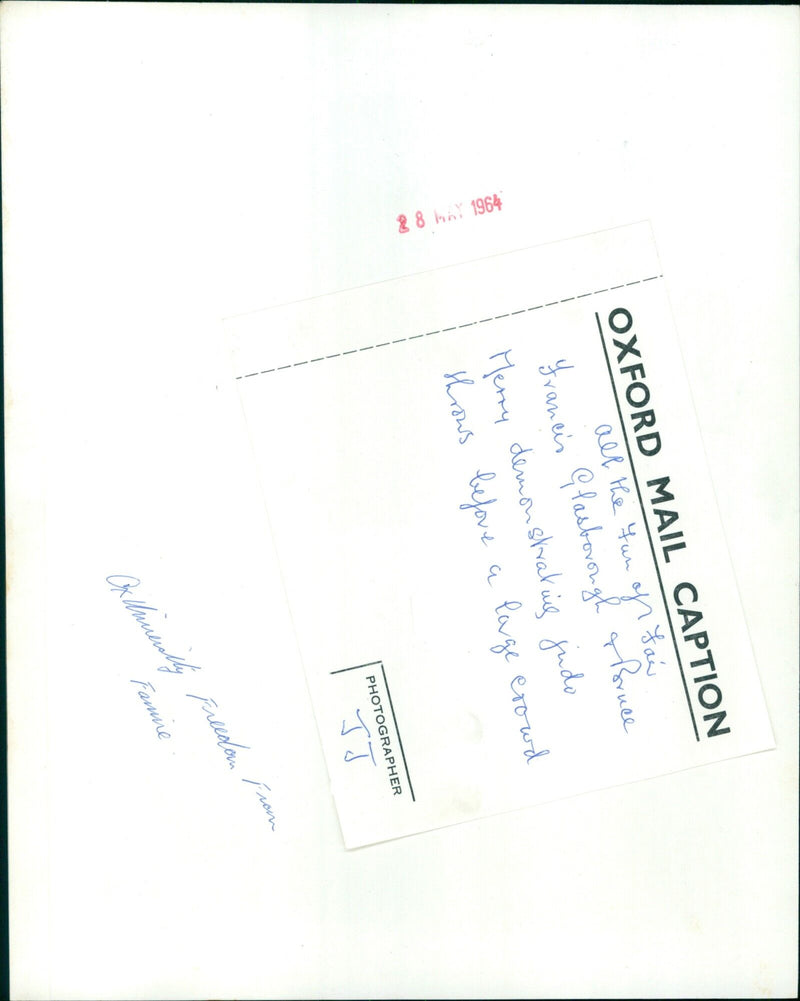 28 MAY 1964
OXFORD MAIL CAPTION
All the Fun of Fair.
Francis Glasborough & Bruce
Merry demonstrating judo
throws before a large crowd
PHOTOGRAPHER
JJ
Ox University Freedom From
Famine.